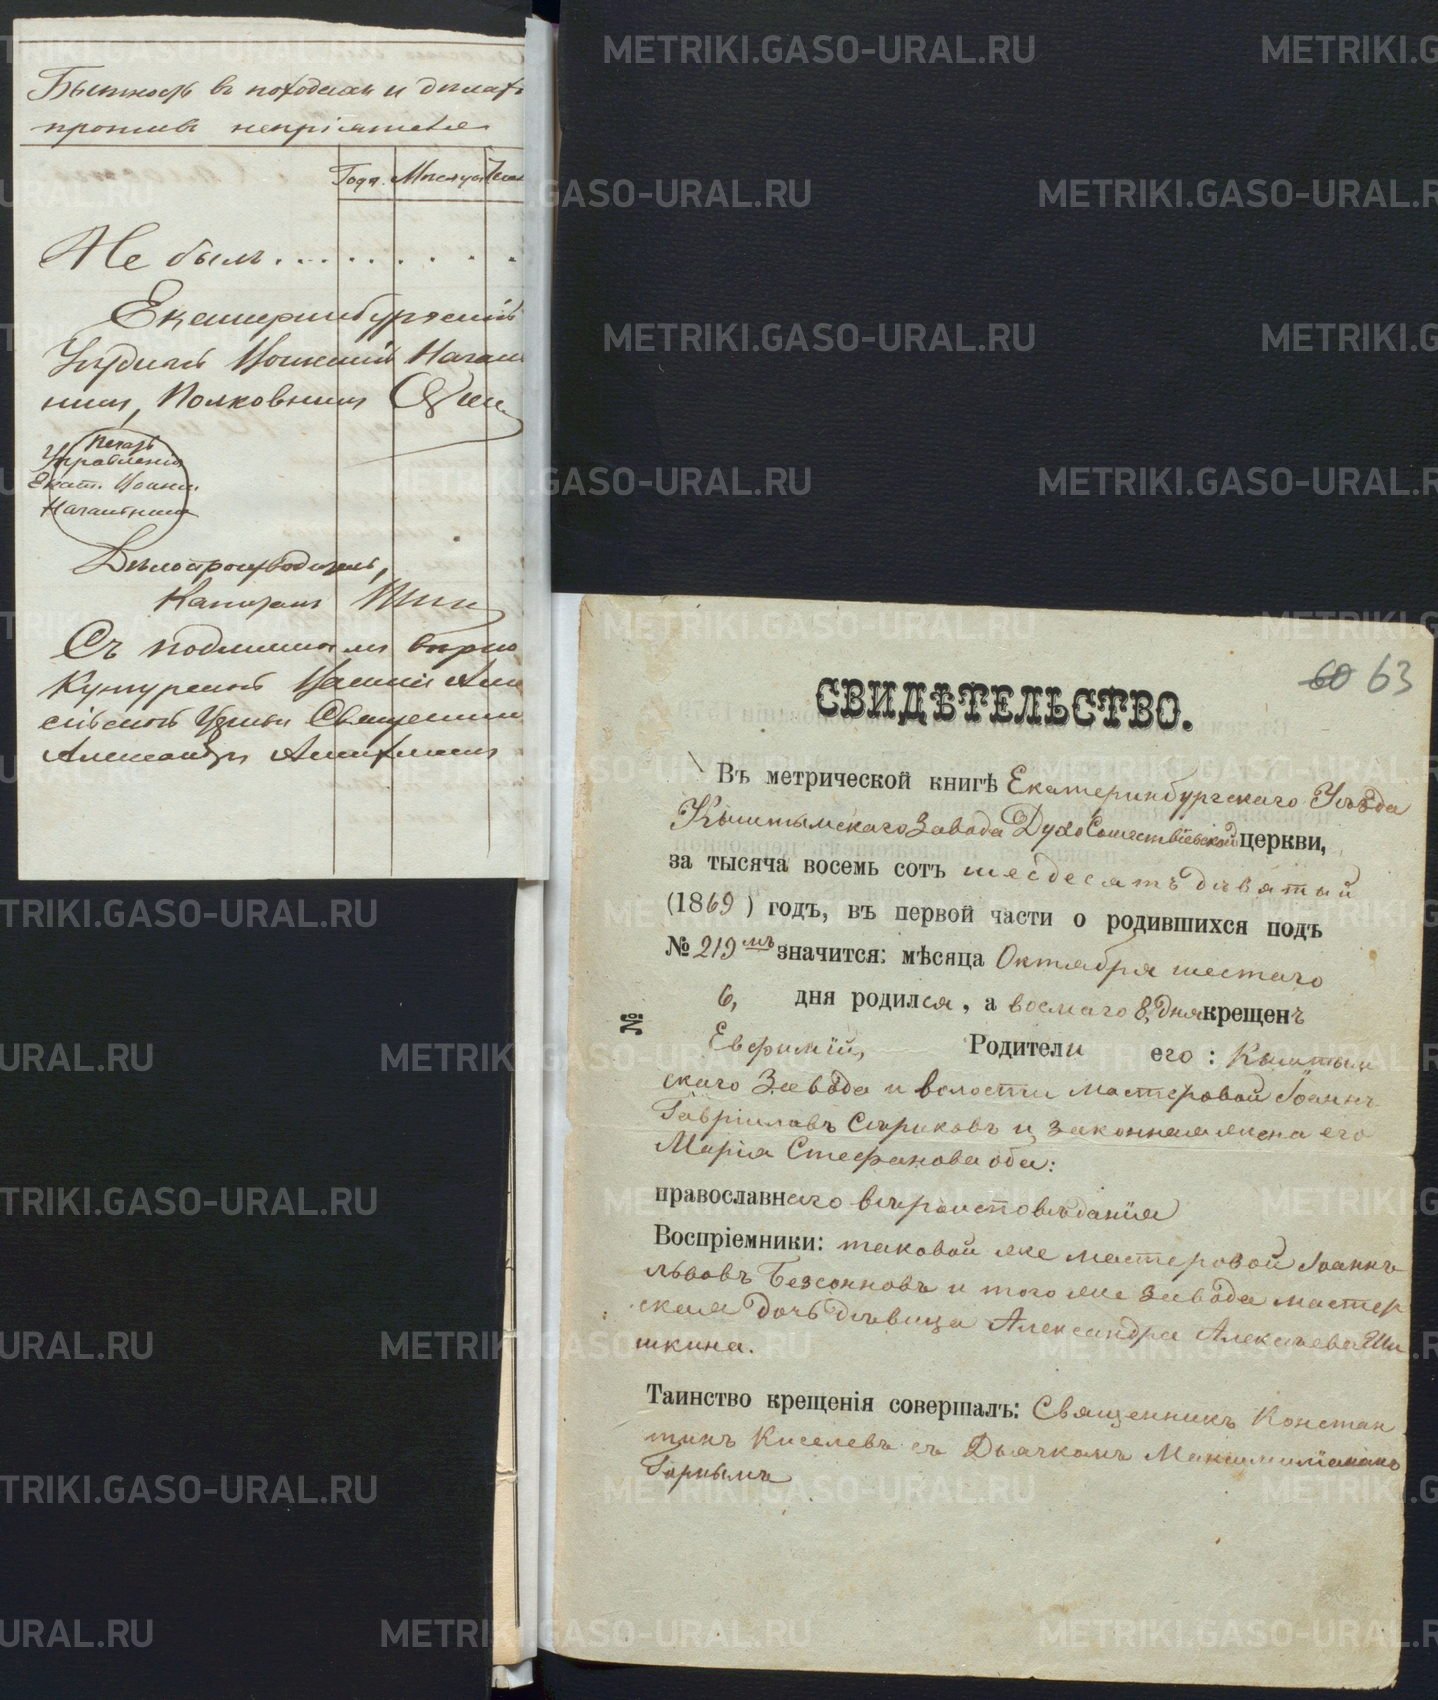 Бытность въ походахъ и дѣлахъ
противъ непріятеля
Года. Мѣсяцы Числа
Не былъ . . . . . . . . .
Екатеринбургскій
Уѣздный Воинскій Началь
никъ, Полковникъ
Печать
Управленія
Екат. Воинск.
Начальника
Дѣлопроизводитель,
Капитанъ
Съ подлиннымъ вѣрно
Священникъ
Александръ
60 63
СВИДѢТЕЛЬСТВО.
Въ метрической книгѣ Екатеринбургскаго Уѣзда
Кыштымскаго Завода Духо Сошествіевской церкви,
за тысяча восемь сотъ шесдесятъ дѣвятый
(1869) годъ, въ первой части о родившихся подъ
№ 219 мъ значится: мѣсяца Октября шестаго
6, дня родился, а восмаго 8, дня крещенъ
№
Евфимій, Родители его: Кыштым
скаго Завода и волости мастеровой Іоаннъ
Гавріиловъ Сѣриковъ и законная жена его
Марія Стефанова оба:
православнаго вѣроисповѣданія
Воспріемники: таковой же мастеровой Іоаннъ
Львовъ Безсонновъ и того же завода мастер
ская дочь дѣвица Александра Алексѣева Ши
шкина.
Таинство крещенія совершалъ: Священникъ Констан
тинъ Киселевъ съ Дьячкомъ Максимиліаномъ
Горнымъ
METRIKI.GASO-URAL.RU